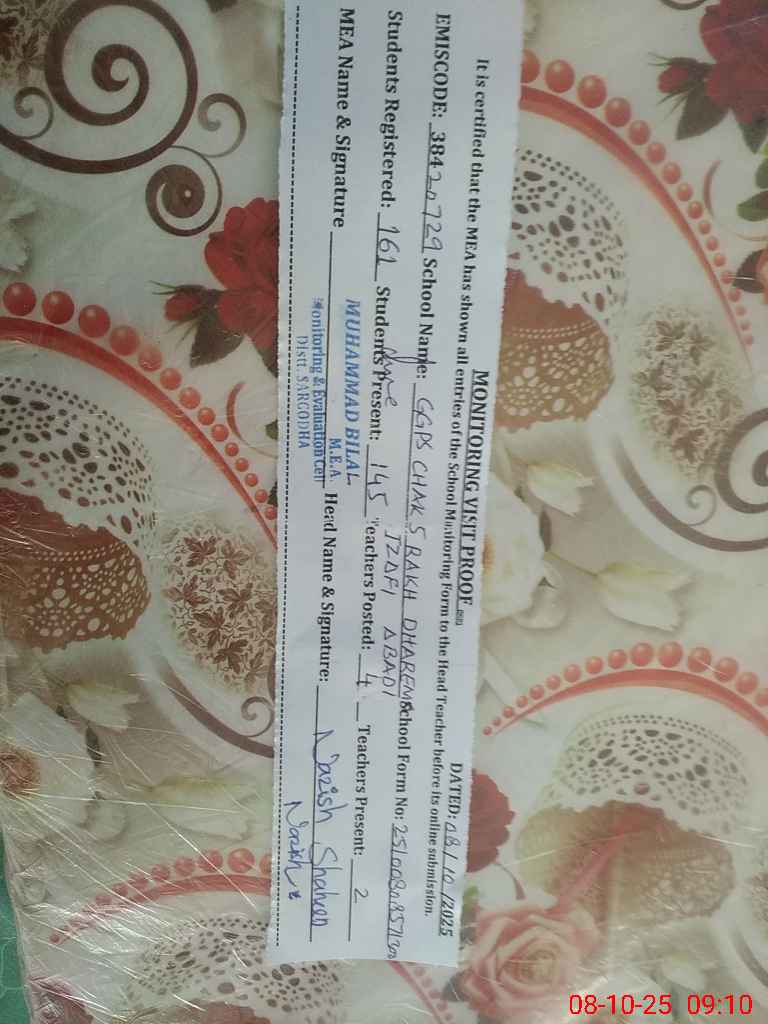 MONITORING VISIT PROOF DATED: 08/10/2025
It is certified that the MEA has shown all entries of the School Monitoring Form to the Head Teacher before its online submission.
EMISCODE: 38420729 School Name: GGPS CHAK 5 RAKH DHAREMA School Form No:
IZAFI ABADI
Students Registered: 161 Students Present: 145 Teachers Posted: 4 Teachers Present: 2
MUHAMMAD BILAL
M.E.A
MEA Name & Signature Head Name & Signature: Nazish Shaheen
Monitoring & Evaluation Cell
Distt. SARGODHA
Nazish
08-10-25 09:10